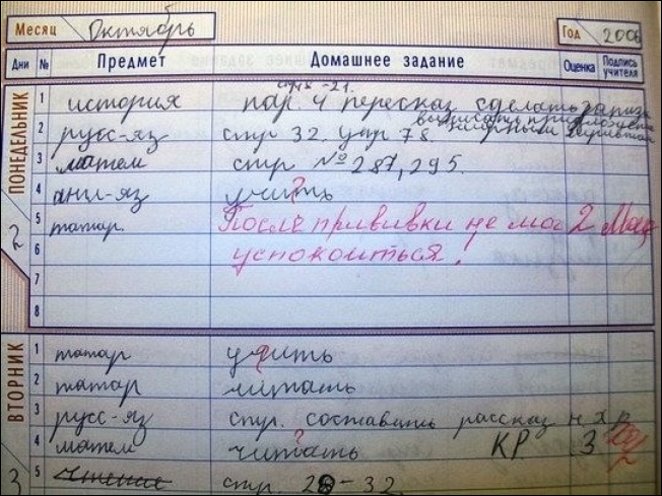 Месяц Октябрь Год 2006
Дни № Предмет Домашнее задание Оценка Подпись учителя
ПОНЕДЕЛЬНИК
2
стр -21.
1 история пар. 4 пересказ сделать
2 русс-яз стр 32. упр 78.
3 матем стр №287, 295.
4 анг-яз учить
5 татар. После прививки не мог 2
6 успокоиться!
7
8
ВТОРНИК
3
1 татар учить
2 татар читать
3 русс-яз стр. составить рассказ
4 матем читать ? КР 3
5 чтение стр. 28-32.